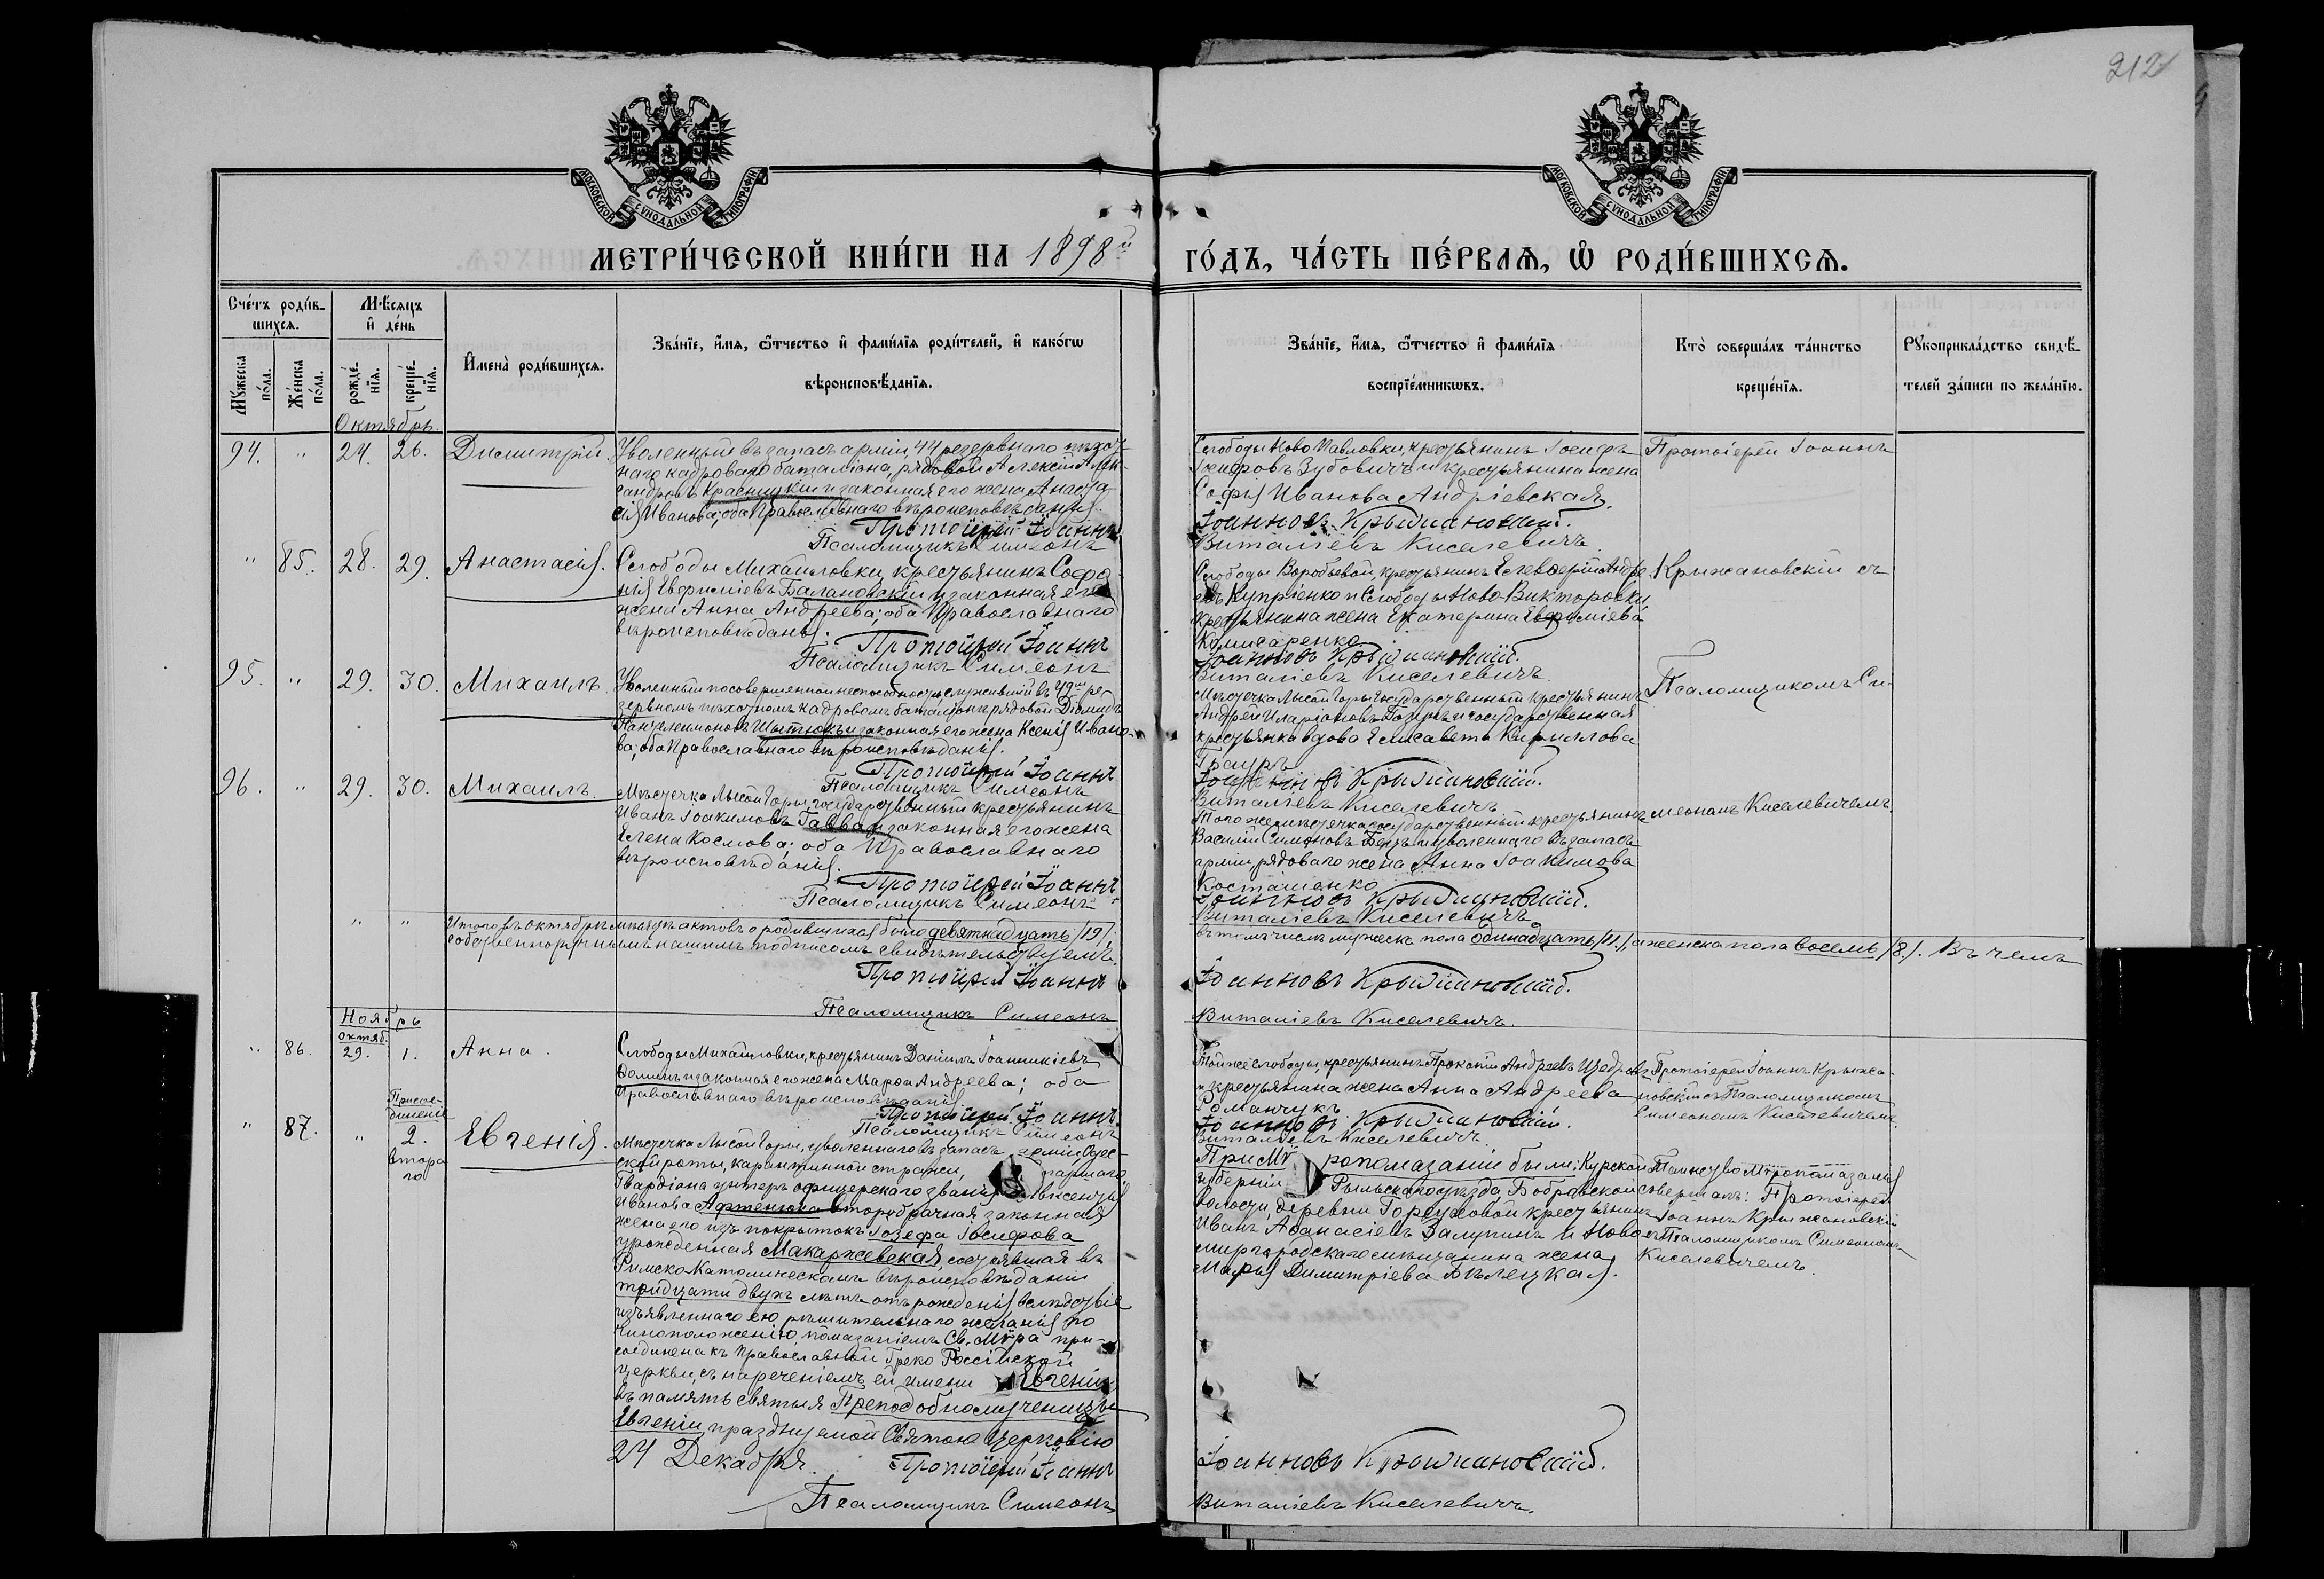 212
МОСКОВСКОЙ СУНОДАЛЬНОЙ ТИПОГРАФІИ
МОСКОВСКОЙ СУНОДАЛЬНОЙ ТИПОГРАФІИ
МЕТРИ́ЧЕСКОЙ КНИ́ГИ НА 1898й
ГО́ДЪ, ЧА́СТЬ ПЕ́РВАѦ, Ѡ҆ РОДИ́ВШИХСѦ.
Сче́тъ роди́в-
шихсѧ.
Мѣ́сѧцъ
и҆ де́нь
Мꙋ́жеска по́ла.
Же́нска по́ла.
рожде́-
нїѧ.
креще́-
нїѧ.
И҆мена̀ роди́вшихсѧ.
Зва́нїе, и҆́мѧ, ѻ҆́тчество и҆ фами́лїѧ роди́телей, и҆ како́гѡ
вѣроисповѣ́данїѧ.
Зва́нїе, и҆́мѧ, ѻ҆́тчество и҆ фами́лїѧ
воспрїе́мникѡвъ.
Кто̀ соверша́лъ та́инство
креще́нїѧ.
Рꙋкоприкла́дство свидѣ́-
телей за́писи по жела́нїю.
Октябрь.
94. " 24. 26. Димитрій.
Уволенный въ запасъ арміи, 44 резервнаго пѣхот-
наго кадроваго баталіона, рядовой Алексій Алек-
сандровъ Красицкій и законная его жена Анаста-
сія Иванова; оба Православнаго вѣроисповѣданія.
Протоіерей Іоаннъ
Псаломщикъ Симеонъ
Слободы Ново Павловки, крестьянинъ Іосифъ
Іосифовъ Зубовичъ и крестьянина жена
Софія Иванова Андріевская.
Іоанновъ Крыжановскій.
Виталіевъ Киселевичъ.
Протоіерей Іоаннъ
" 85. 28. 29. Анастасія.
Слободы Михайловки, крестьянинъ Софо-
ній Евфиміевъ Балановскій и законная его
жена Анна Андреева; оба Православнаго
вѣроисповѣданія.
Протоіерей Іоаннъ
Псаломщикъ Симеонъ
Слободы Воробьевой, крестьянинъ Елевферій Андре-
евъ Купріенко и Слободы Ново-Викторовки
крестьянина жена Екатерина Евфиміева
Комисаренко.
Іоанновъ Крыжановскій.
Виталіевъ Киселевичъ.
Крижановскій съ
95. " 29. 30. Михаилъ.
Уволенный по совершенной неспособности, служившій въ 49м ре-
зервномъ пѣхотномъ кадровомъ баталіонѣ рядовой Діомидъ
Пантелеимоновъ Шытюкъ и законная его жена Ксенія Ивано-
ва; оба Православнаго вѣроисповѣданія.
Протоіерей Іоаннъ
Псаломщикъ Симеонъ
Мѣстечка Лысой Горы государственный крестьянинъ
Андрей Иларіоновъ и государственная
крестьянка вдова Елисавета Кириллова
Грауръ
Іоанновъ Крыжановскій.
Виталіевъ Киселевичъ
Псаломщикомъ Си-
96. " 29. 30. Михаилъ.
Мѣстечка Лысой Горы, государственный крестьянинъ
Иванъ Іоакимовъ Гавва и законная его жена
Елена Космова; оба Православнаго
вѣроисповѣданія.
Протоіерей Іоаннъ
Псаломщикъ Симеонъ
Того же мѣстечка государственный крестьянинъ
Василій Симоновъ и уволеннаго въ запасъ
арміи рядоваго жена Анна Іоакимова
Косташенко
Іоанновъ Крыжановскій.
Виталіевъ Киселевичъ
меономъ Киселевичемъ
" " Итого въ октябрѣ мѣсяцѣ актовъ о родившихся было девятнадцать /19/.
въ томъ числѣ мужеска пола одинадцать /11./, а женска пола восемь /8./. Въ чемъ
собственноручнымъ нашимъ подписомъ свидѣтельствуемъ.
Протоіерей Іоаннъ
Іоанновъ Крыжановскій.
Псаломщикъ Симеонъ
Виталіевъ Киселевичъ.
Ноябрь
октяб.
" 86. 29. 1. Анна.
Слободы Михайловки, крестьянинъ Даніилъ Іоанникіевъ
и законная его жена Марѳа Андреева; оба
Православнаго вѣроисповѣданія.
Протоіерей Іоаннъ
Псаломщикъ Симеонъ
Той же слободы, крестьянинъ Прокопій Андреевъ
и крестьянина жена Анна Андреева
Романчукъ
Іоанновъ Крыжановскій.
Виталіевъ Киселевичъ
Протоіерей Іоаннъ Крыжа-
новскій съ Псаломщикомъ
Симеономъ Киселевичемъ.
Присое-
диненіе
" 87. " 2.
втора-
го
Евгенія.
Мѣстечка Лысой Горы, уволеннаго въ запасъ арміи Одес-
ской роты, карантинной стражи, старшаго
Гвардіона унтеръ офицерскаго званія Авксентія
Иванова Афтенюка второбрачная законная
жена его изъ покрытокъ Іозефа Іосифова
урожденная Макаржевская, состоявшая въ
Римско-Католическомъ вѣроисповѣданіи
тридцати двухъ лѣтъ отъ рожденія, вслѣдствіе
изъявленнаго ею рѣшительнаго желанія по
чиноположенію, помазаніемъ Св. Мѵра при-
соединена къ Православной Греко Россійской
церкви, съ нареченіемъ ей имени Евгенія,
въ память святыя Преподобномученицы
Евгеніи, празднуемой Святою Церковію
24 Декабря.
Протоіерей Іоаннъ
Псаломщикъ Симеонъ
При Мѵропомазаніи были: Курской
губерніи Рыльскаго уѣзда, Бобровской
волости, деревни Горсуховой крестьянинъ
Иванъ Аѳанасіевъ Залупинъ и Ново-
миргородскаго мѣщанина жена
Марія Димитріева Бѣлецкая.
Іоанновъ Крыжановскій.
Виталіевъ Киселевичъ.
Таинство Мѵропомазанія
совершалъ: Протоіерей
Іоаннъ Крыжановскій
съ Псаломщикомъ Симеономъ
Киселевичемъ.